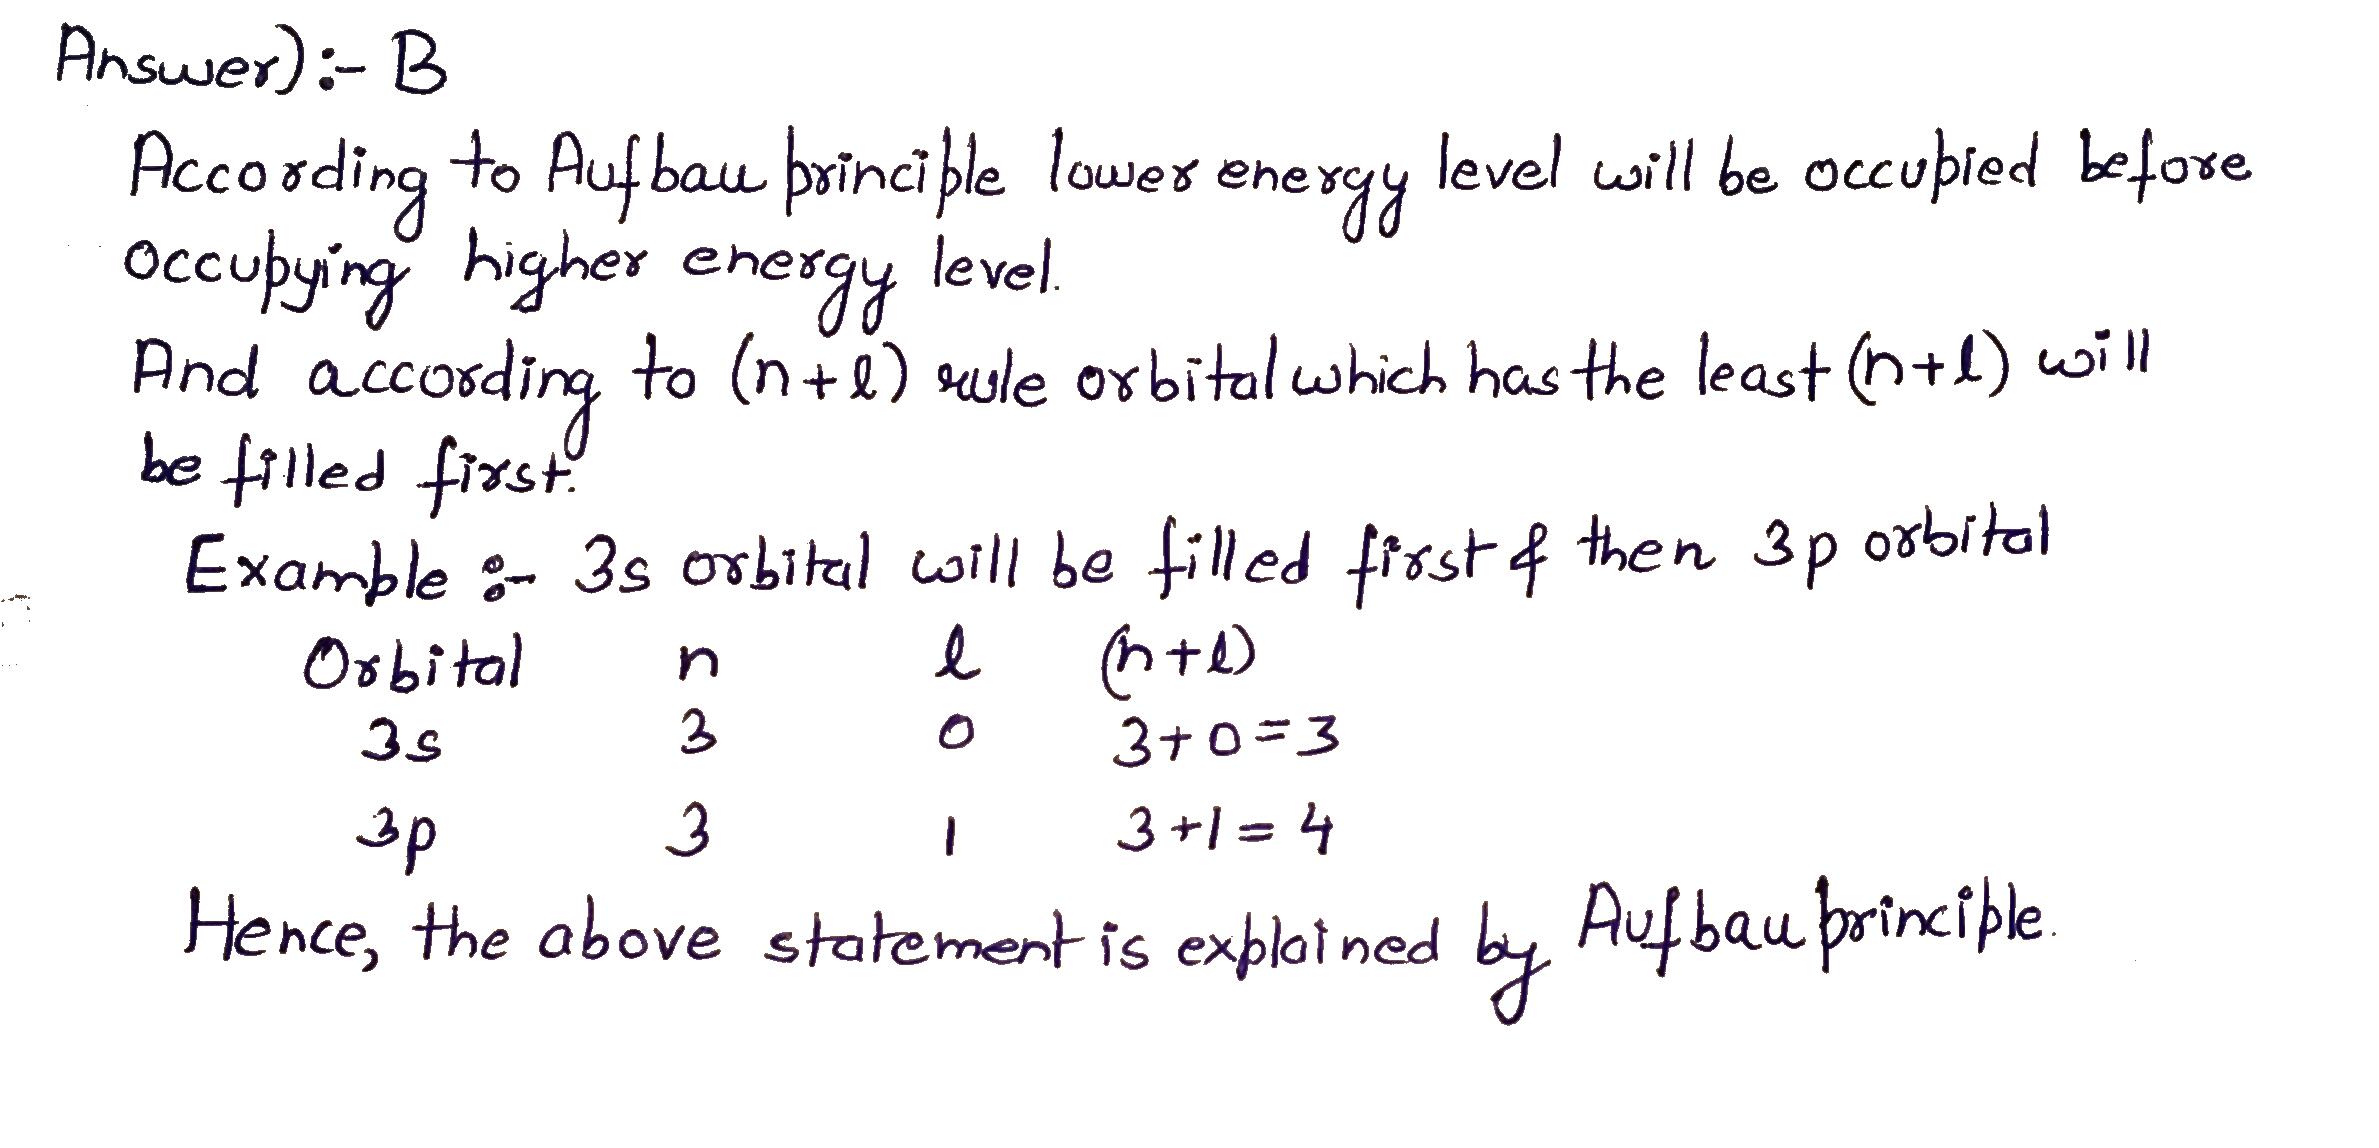 Answer):- B
According to Aufbau principle lower energy level will be occupied before
occupying higher energy level.
And according to (n+l) rule orbital which has the least (n+l) will
be filled first.
Example :- 3s orbital will be filled first & then 3p orbital
Orbital n l (n+l)
3s 3 0 3+0=3
3p 3 1 3+1=4
Hence, the above statement is explained by Aufbau principle.